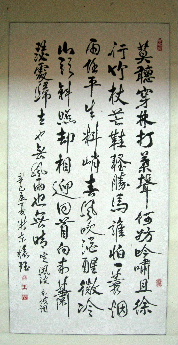 莫聽穿林打葉聲何妨吟嘯且徐
行竹杖芒鞋輕勝馬誰怕一蓑煙
雨任平生料峭春風吹酒醒微冷
山頭斜照卻相迎回首向來蕭
瑟處歸去也無風雨也無晴